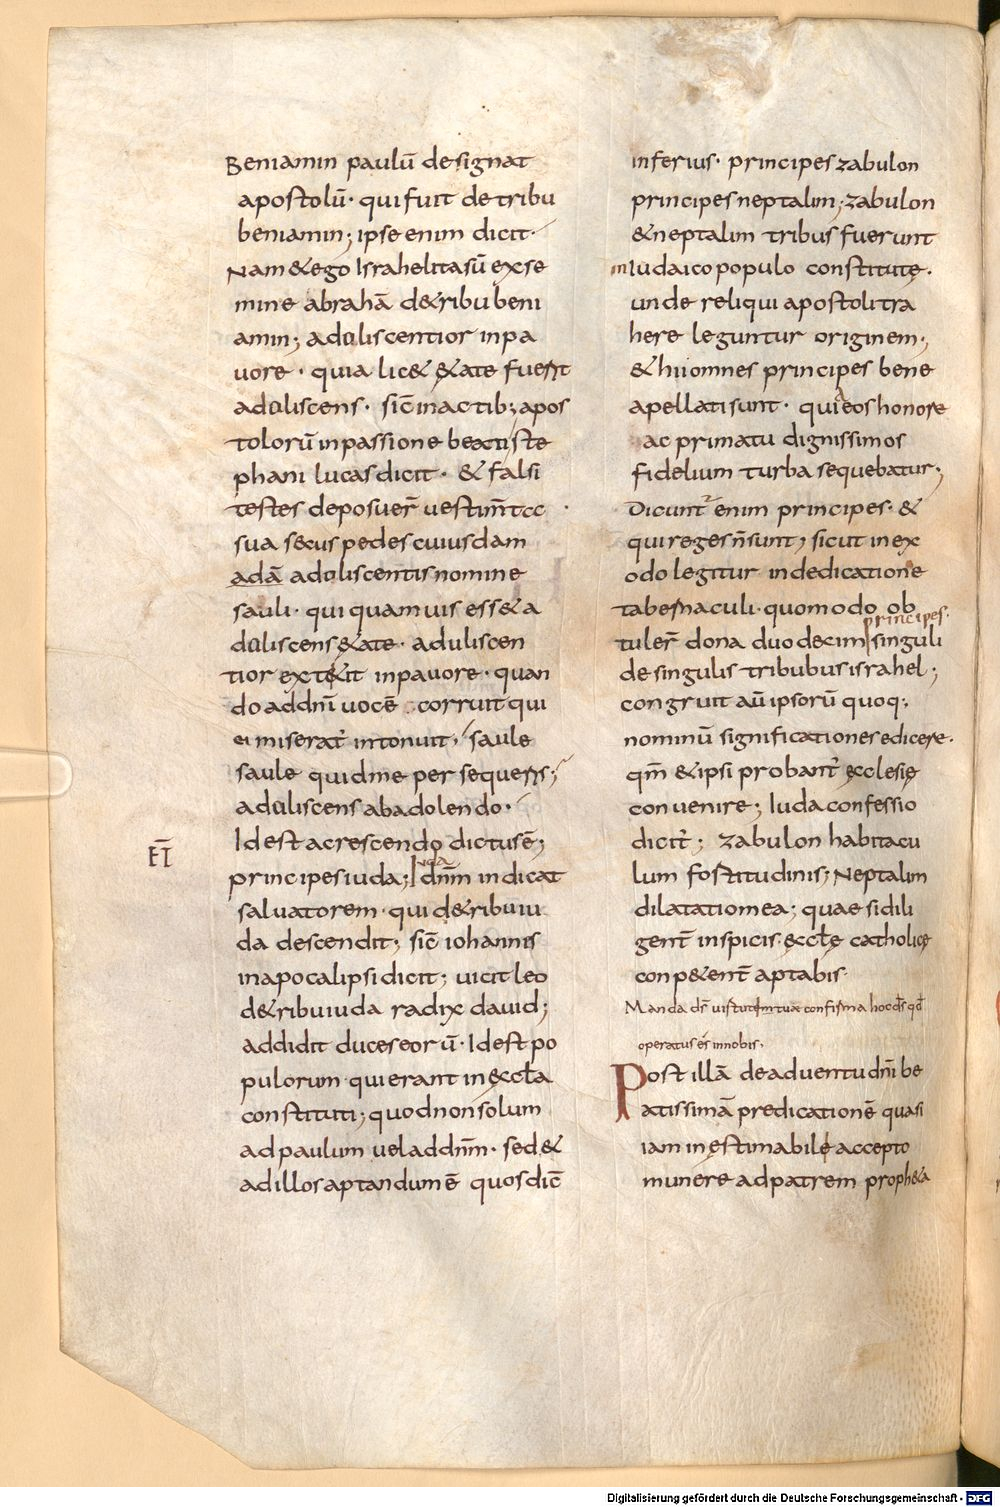 Beniamin paulū designat
apostolū· qui fuit de tribu
beniamin; ipse enim dicit·
Nam & ego Israhelita sū ex se
mine abrahā de tribu beni
amin; aduliscentior in pa
uore· quia lic& & ate fuerit
aduliscens· sic̄ in actib; apos
tolorū in passione beati ste
phani lucas dicit· & falsi
testes deposuer̄ uestim̄ta
sua secus pedes cuiusdam
adā aduliscentis nomine
sauli· qui quamuis ess& a
duliscens &ate· aduliscen
tior extitit in pauore· quan
do ad dn̄i uocē corruit qui
ei miserat̄ intonuit; saule
saule quid me persequeris;
aduliscens ab adolendo·
Id est a crescendo dictus ē;
principes iuda; dn̄m indicat
saluatorem· qui de tribu iu
da descendit; sic̄ iohannis
in apocalipsi dicit; uicit leo
de tribu iuda radix dauid;
addidit duces eorū· Id est po
pulorum· qui erant in ęccła
constituti; quod non solum
ad paulum uel ad dn̄m· sed &
ad illos aptandum ē quos dic̄
EI
inferius· principes zabulon
principes neptalim; zabulon
& neptalim tribus fuerunt
in Iudaico populo constitutę·
unde reliqui apostoli tra
here leguntur originem;
& hii omnes principes bene
apellati sunt· quia eos honore
ac primatu dignissimos
fidelium turba sequebatur;
Dicunt̄ enim principes· &
qui reges n̄ sunt; sicut in ex
odo legitur in dedicatione
tabernaculi· quomodo ob
principes·
tuler̄ dona duodecim singuli
de singulis tribubus israhel;
congruit aū ipsorū quoq;
nominū significationes edicere·
qm̄ & ipsi probant̄ ęcclesię
conuenire; Iuda confessio
dicit̄; zabulon habitacu
lum fortitudinis; Neptalim
dilatatio mea; quae si dili
gent̄ inspicis· ęccłę catholicę
conpetent̄ aptabis·
Manda ds̄ uirtutem tuam confirma hoc ds̄ qd̄
operatus es in nobis·
Post illā de aduentu dn̄i be
atissimā predicationē quasi
iam inęstimabile accepto
munere ad patrem proph&a
Digitalisierung gefördert durch die Deutsche Forschungsgemeinschaft - DFG